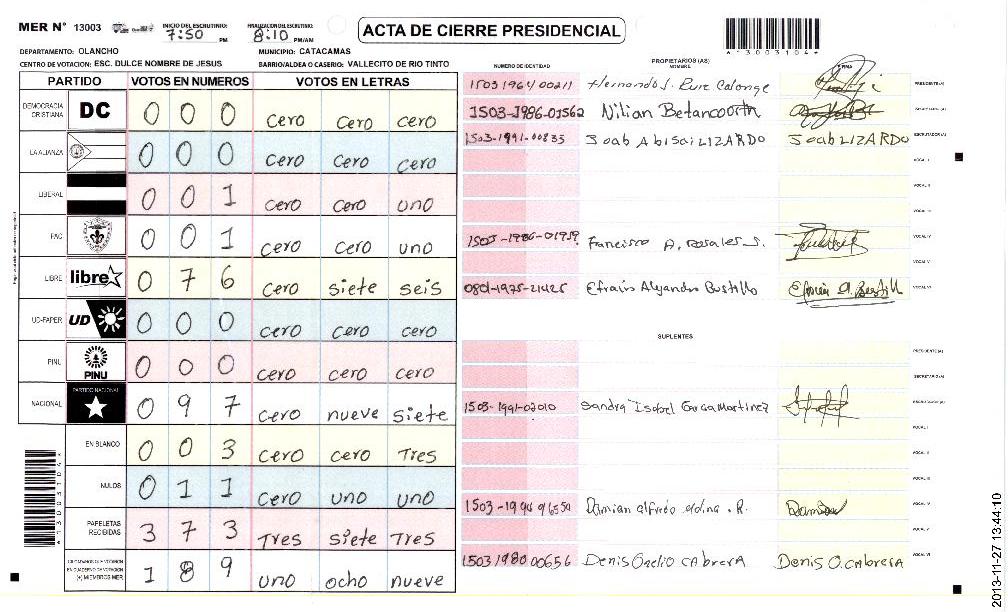 MER N° 13003
INICIO DEL ESCRUTINIO:
7:50 PM
FINALIZACION DEL ESCRUTINIO:
8:10 PM/AM
ACTA DE CIERRE PRESIDENCIAL
*13003104*
DEPARTAMENTO: OLANCHO
MUNICIPIO: CATACAMAS
CENTRO DE VOTACION: ESC. DULCE NOMBRE DE JESUS
BARRIO/ALDEA O CASERIO: VALLECITO DE RIO TINTO
PARTIDO VOTOS EN NUMEROS VOTOS EN LETRAS
DEMOCRACIA CRISTIANA DC 0 0 0 cero cero cero
LA ALIANZA 0 0 0 cero cero cero
LIBERAL 0 0 1 cero cero uno
PAC 0 0 1 cero cero uno
LIBRE libre 0 7 6 cero siete seis
UD-FAPER UD 0 0 0 cero cero cero
PINU PINU 0 0 0 cero cero cero
NACIONAL PARTIDO NACIONAL 0 9 7 cero nueve siete
EN BLANCO 0 0 3 cero cero Tres
NULOS 0 1 1 cero uno uno
PAPELETAS RECIBIDAS 3 7 3 Tres siete Tres
(+) MIEMBROS MER 1 8 9 uno ocho nueve
NUMERO DE IDENTIDAD
PROPIETARIOS (AS)
NOMBRE
FIRMA
1503 1964 00211 Hernando J. Ruiz Calonge PRESIDENTE (A)
1503-1986-01562 Nilian Betancourth SECRETARIO (A)
1503-1991-00835 Joab Abisai LIZARDO Joab LIZARDO ESCRUTADOR (A)
VOCAL I
VOCAL II
VOCAL III
1503-1986-01959 Francisco A. Rosales S. VOCAL IV
VOCAL V
0801-1975-21425 Efrain Alejandro Bustillo VOCAL VI
SUPLENTES
PRESIDENTE (A)
SECRETARIO (A)
1503-1991-02010 Sandra Isabel Garcia Martinez ESCRUTADOR (A)
VOCAL I
VOCAL II
VOCAL III
Damian alfredo VOCAL IV
VOCAL V
1503 1980 00656 Denis Onelio CAbrerA Denis O. CAbrerA VOCAL VI
2013-11-27 13:44:10